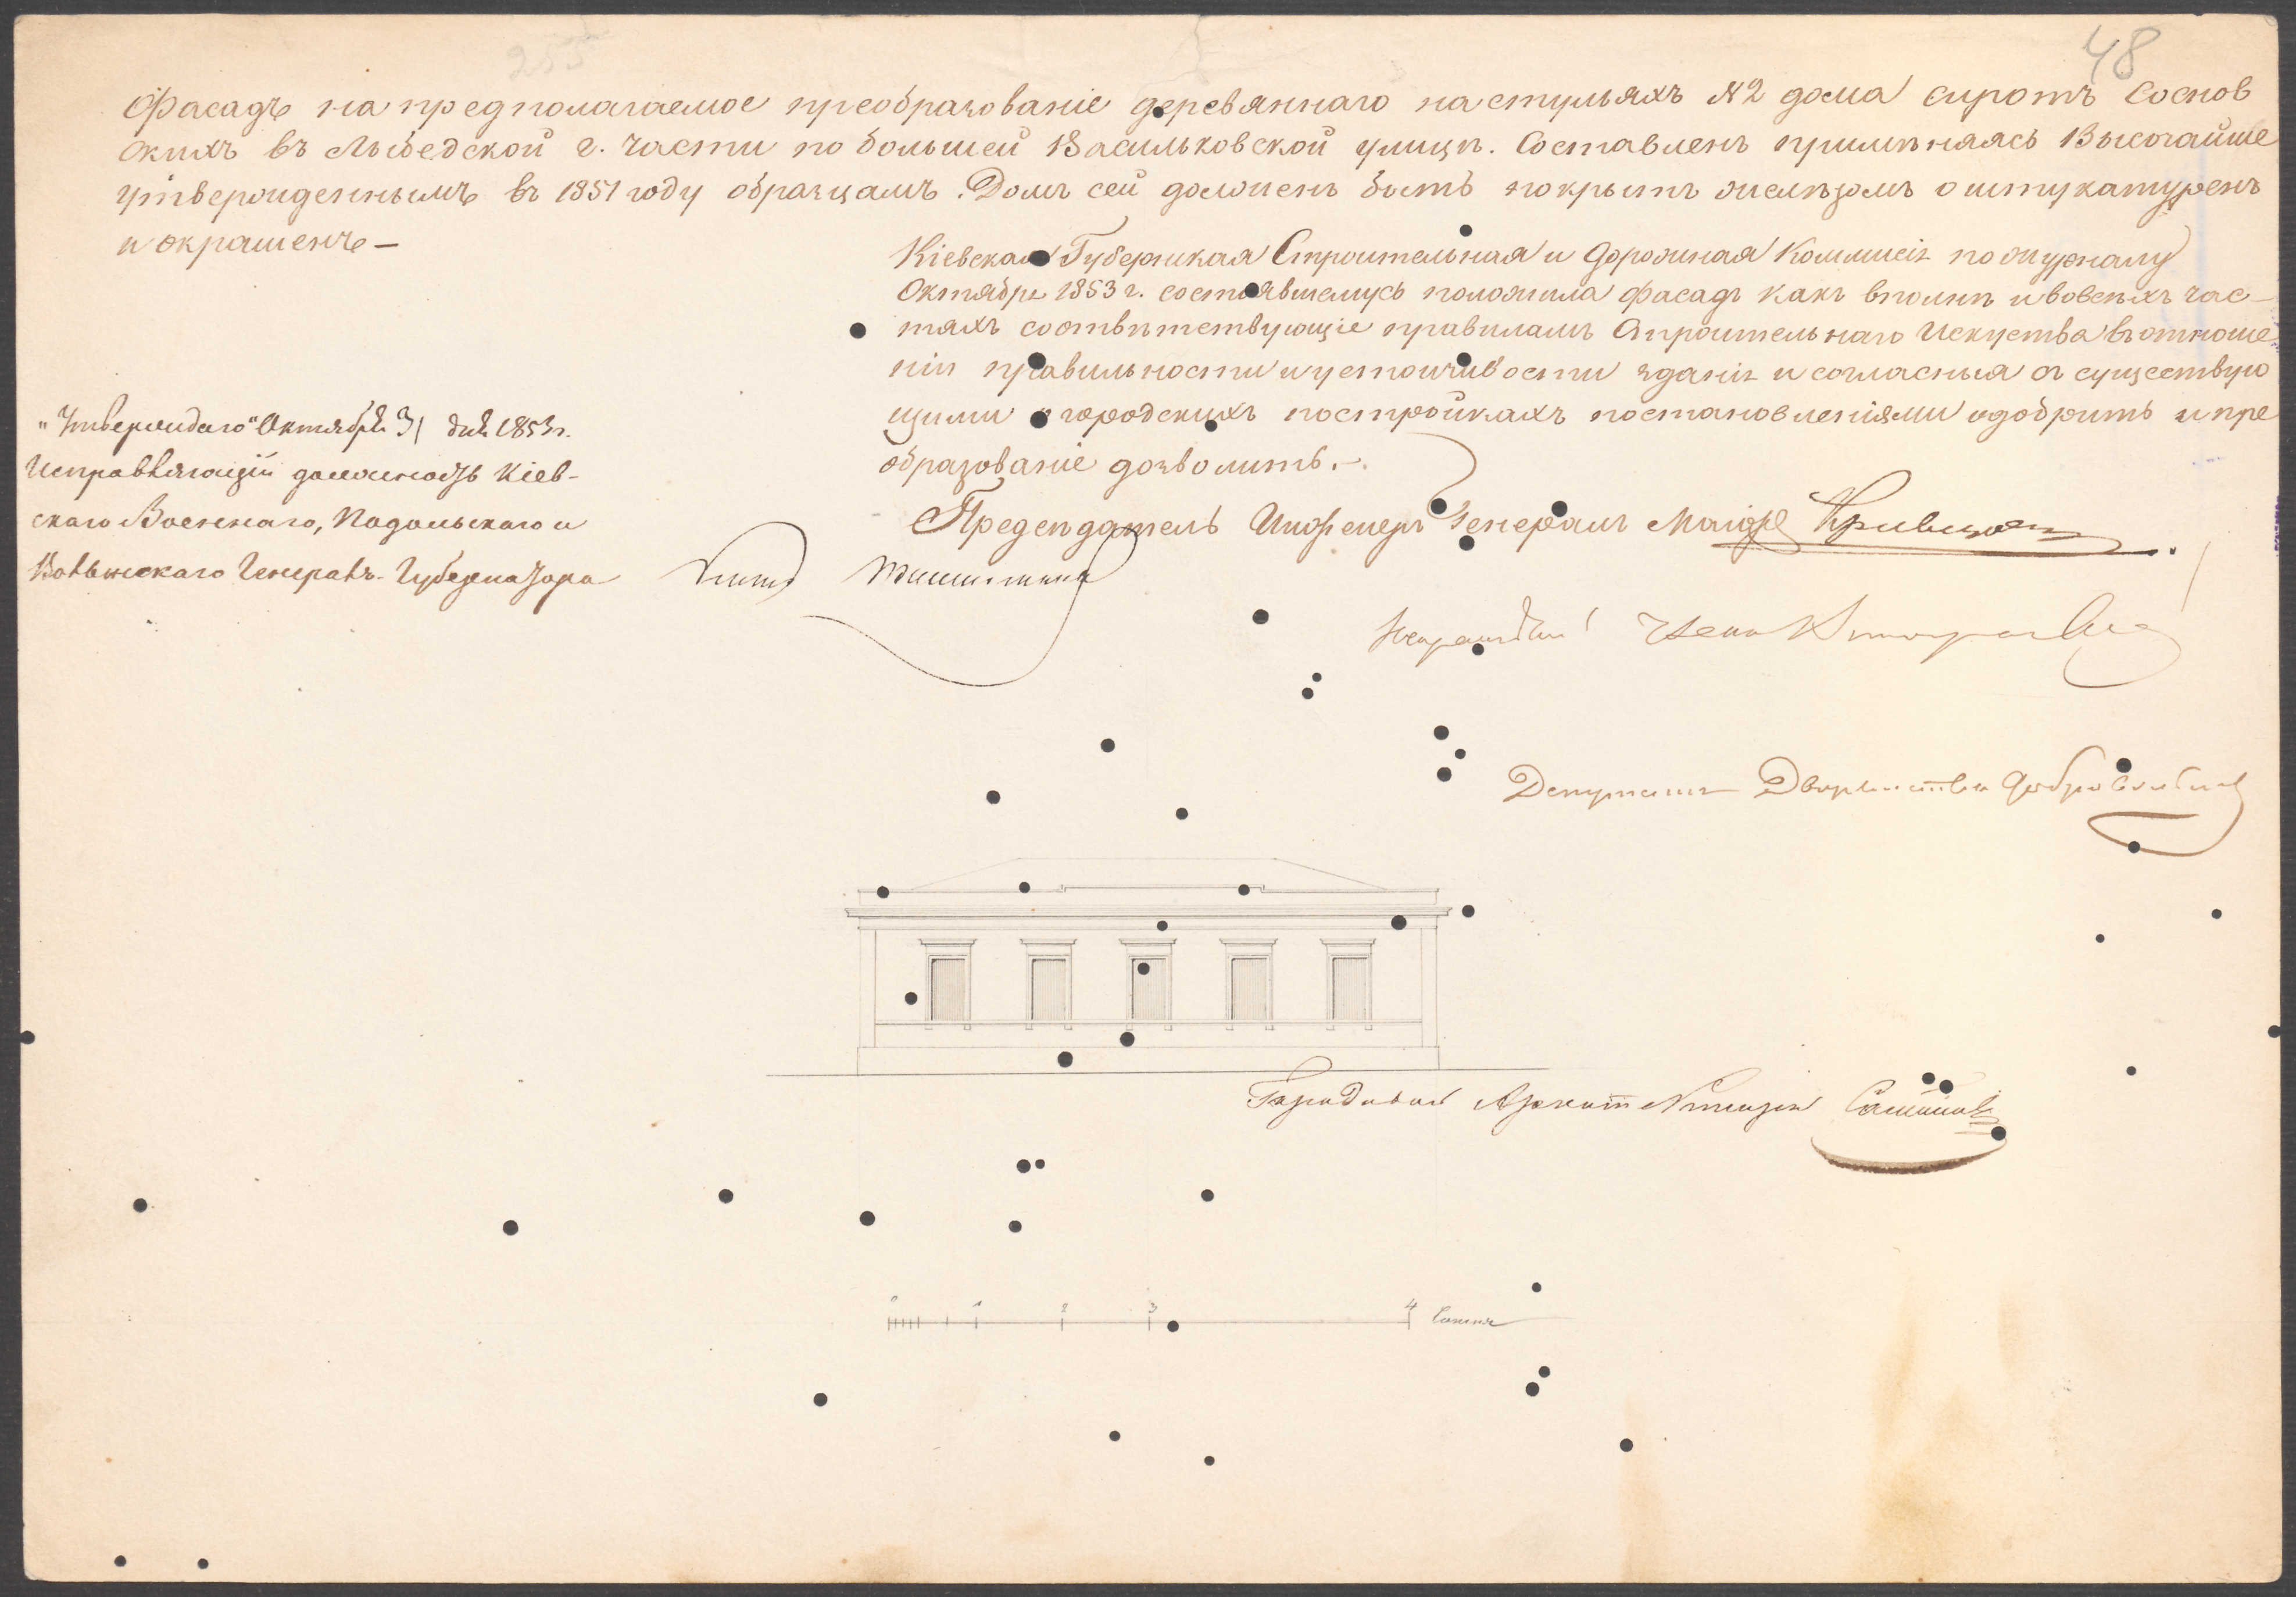 255
48
Фасадъ на предполагаемое преобразованіе деревяннаго на стульяхъ №2 дома сиротъ Соснов
скихъ въ Лыбедской г. части по большей Васильковской улицѣ. Составленъ примѣняясь Высочайше
утвержденнымъ въ 1851 году образцамъ. Домъ сей долженъ быть покрытъ желѣзомъ оштукатуренъ
и окрашенъ —
Кіевская Губернская Строительная и Дорожная Коммисія по журналу
Октября 1853 г. состоявшемусь положила фасадъ какъ вполнѣ и вовсѣхъ час-
тяхъ соотвѣтствующіе правиламъ Строительнаго Искуства въ отноше
ніи правильности и устойчивости зданія и согласныя съ существую
щими о городскихъ постройкахъ постановленіями одобрить и пре
образованіе дозволить. —.
„Утверждаю" Октября 31 дня 1853 г.
Исправляющій должность Кіев-
скаго Военнаго, Подольскаго и
Волынскаго Генералъ-Губернатора
Предсѣдатель Инженеръ Генералъ Маіоръ Кривцовъ
Депутатъ Дворянства
Городовой Архитекторъ
0 1 2 3 4 Сажня